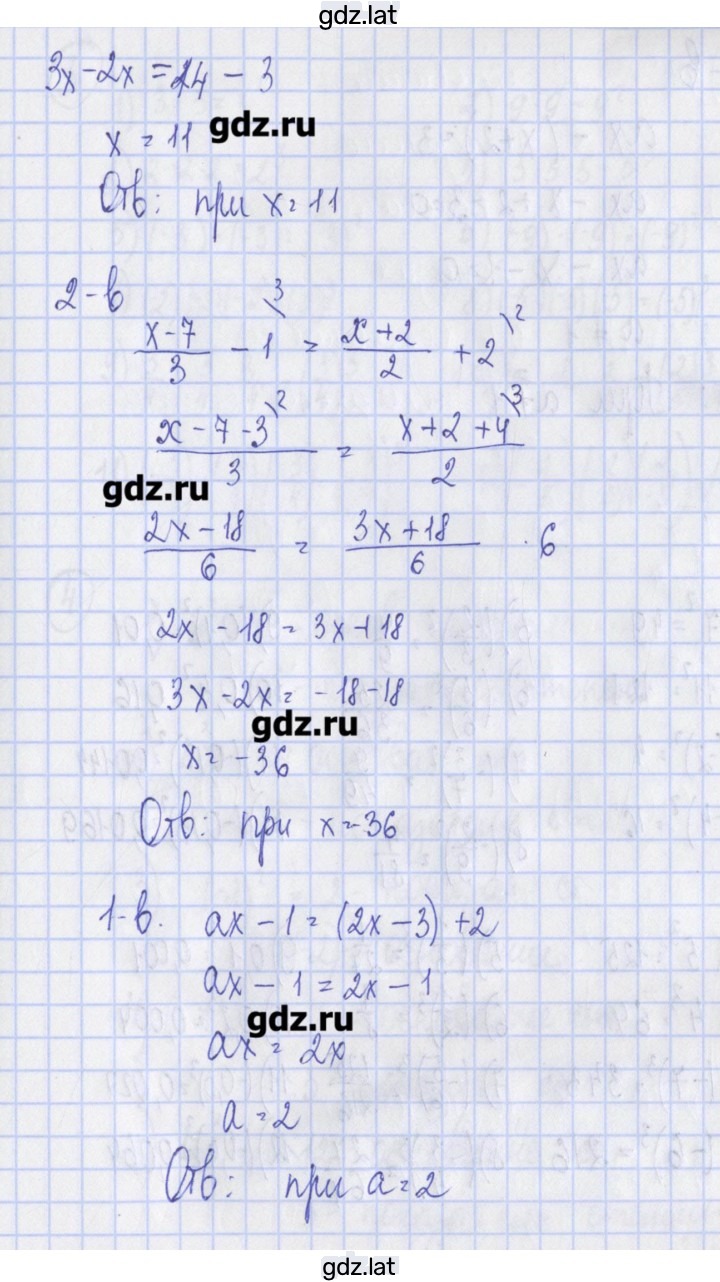 gdz.lat
3x-2x = 14 - 3
x = 11 gdz.ru
Отв: при x=11
2-в
(x-7)/3 - 1\3 = (x+2)/2 + 2\2
(x-7-3)/3 \2 = (x+2+4)/2 \3
gdz.ru
(2x-18)/6 = (3x+18)/6 · 6
2x -18 = 3x+18
3x-2x = -18-18
gdz.ru
x = -36
Отв: при x=-36
1-в. ax - 1 = (2x-3) +2
ax - 1 = 2x - 1
gdz.ru
ax = 2x
a = 2
Отв: при a=2
gdz.lat